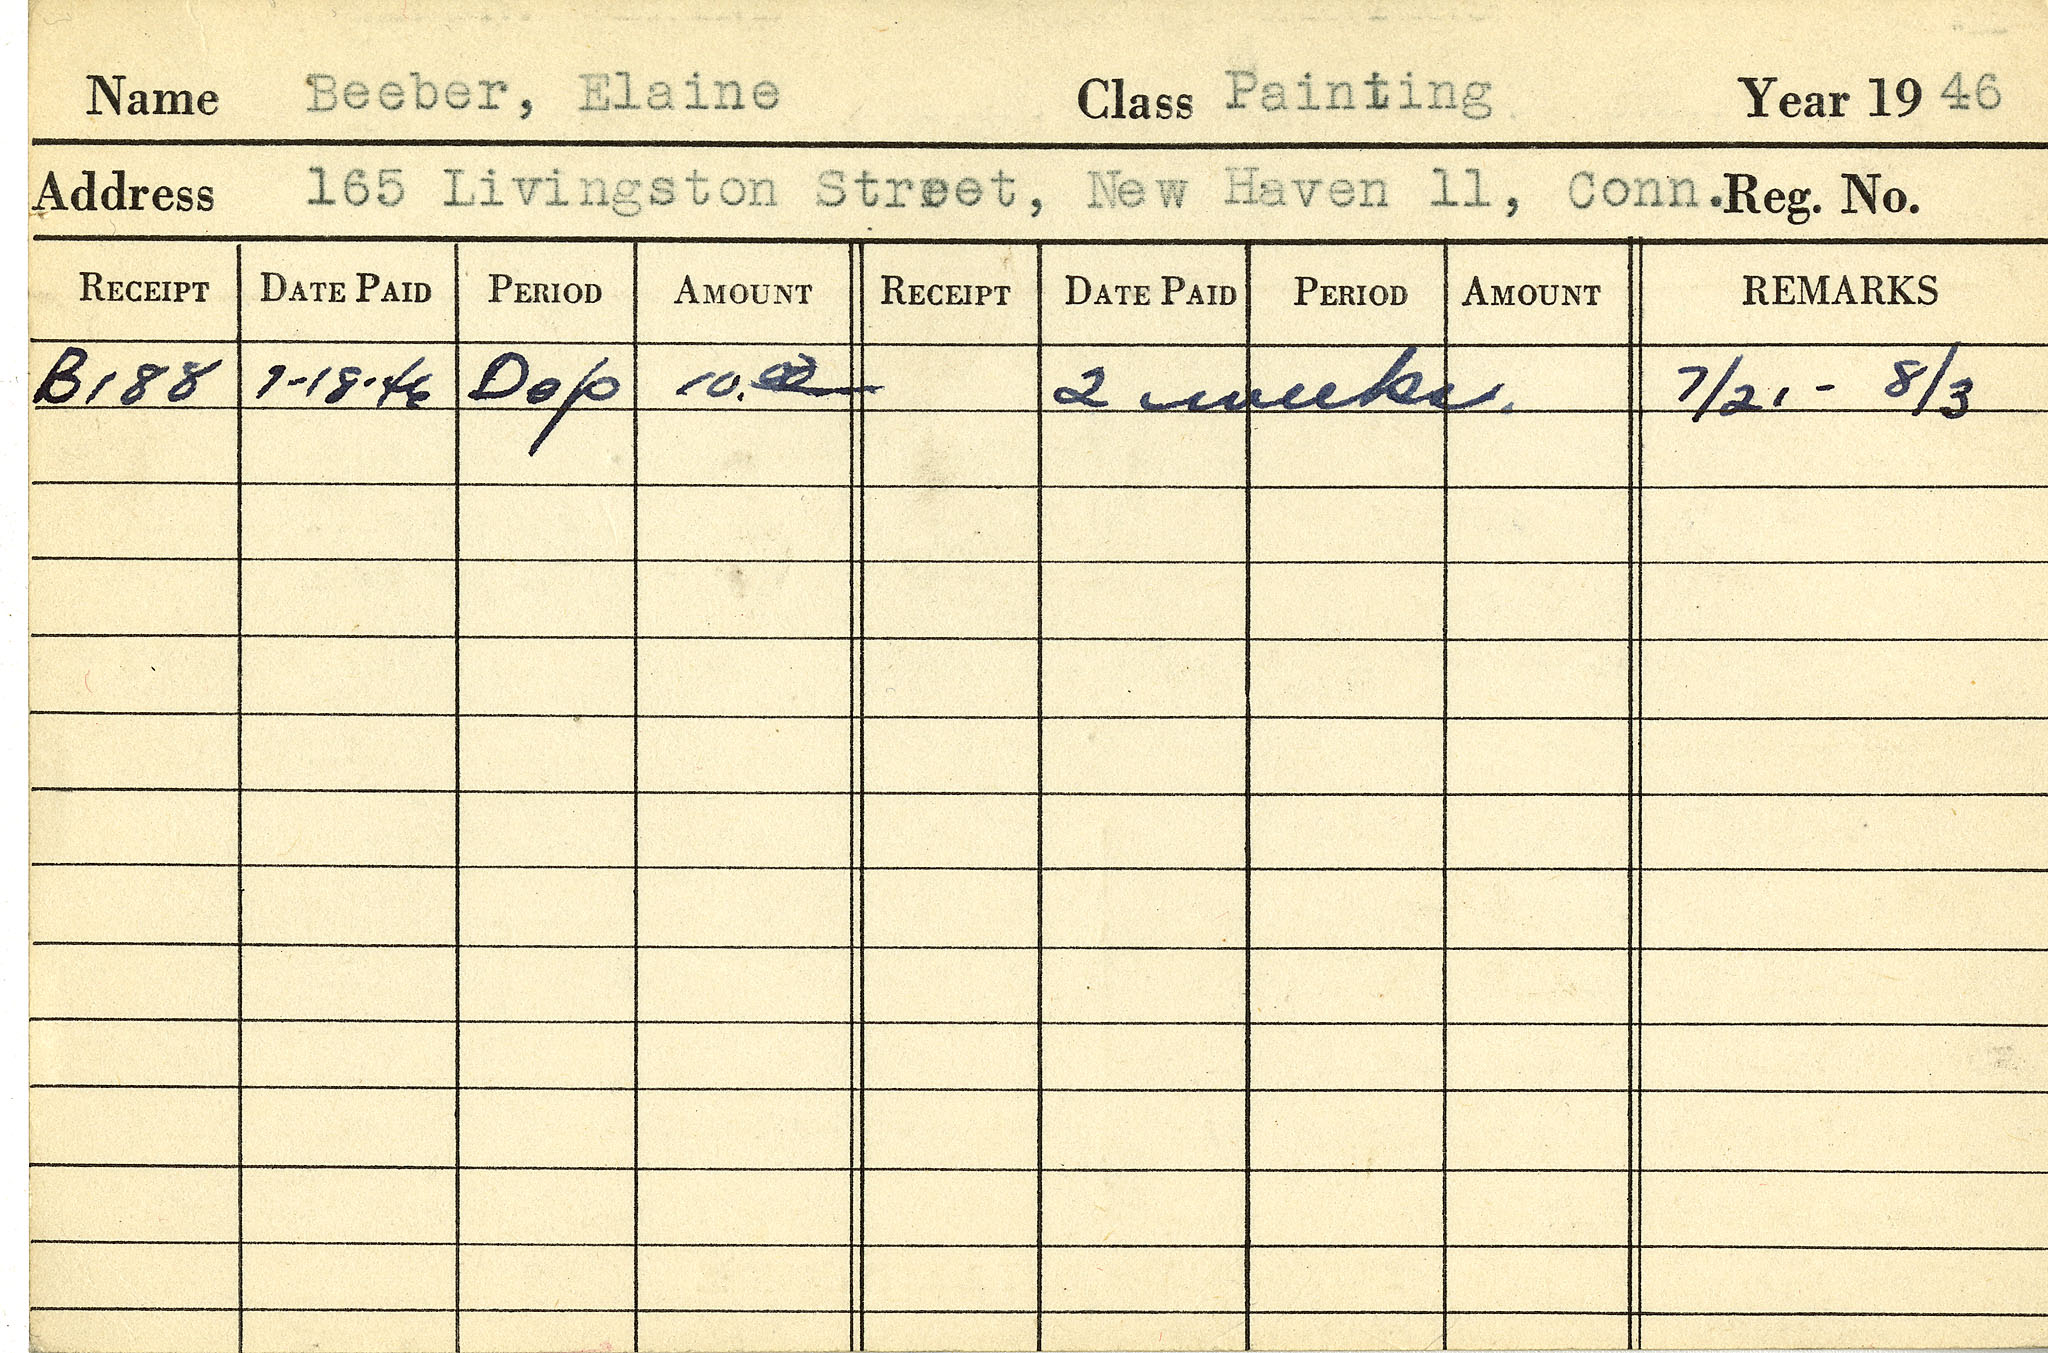 Name Beeber, Elaine Class Painting Year 19 46
Address 165 Livingston Street, New Haven 11, Conn. Reg. No.
RECEIPT DATE PAID PERIOD AMOUNT RECEIPT DATE PAID PERIOD AMOUNT REMARKS
B188 7-18-46 Dep 10.00 2 weeks. 7/21 - 8/3